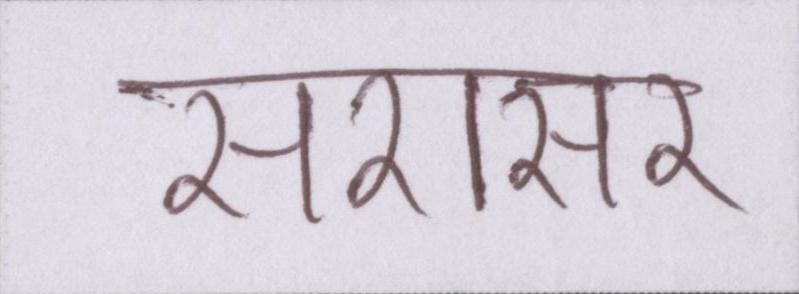 सरासर